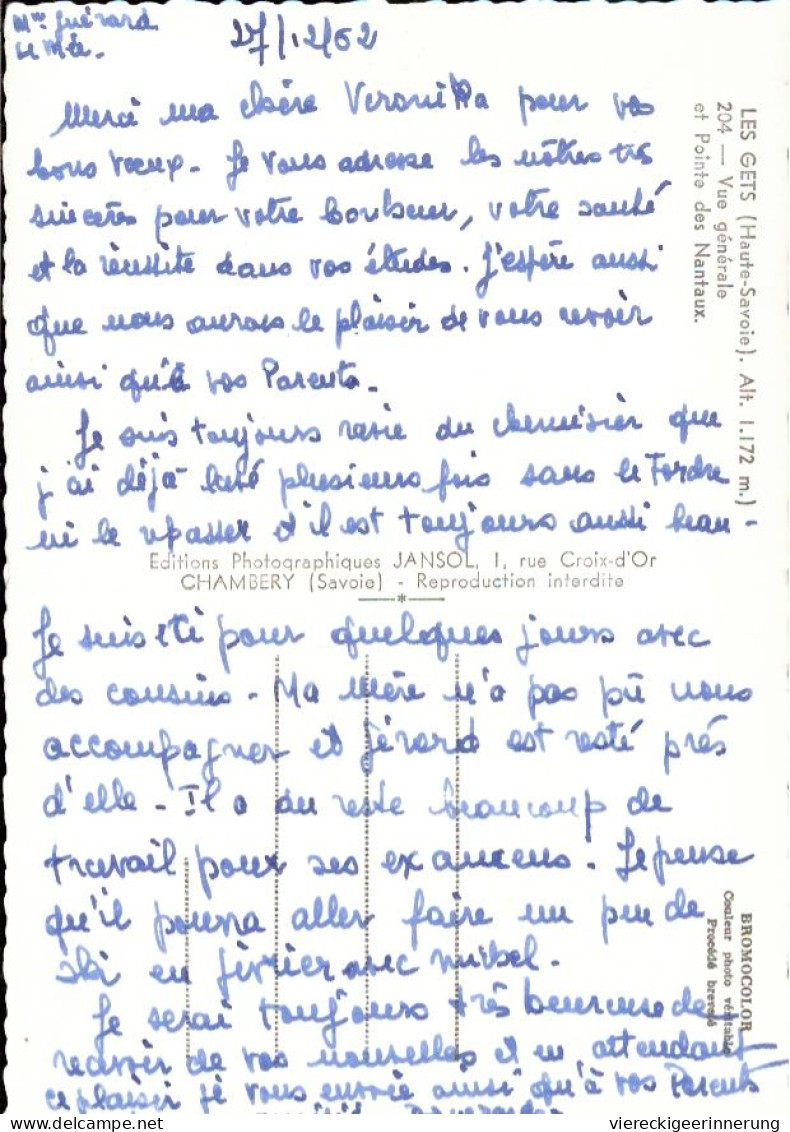 Mme Guérard
27/12/62
Merci ma chère Veronika pour vos
bons vœux - Je vous adresse les nôtres très
sincères pour votre bonheur, votre santé
et la réussite dans vos études. J'espère aussi
que nous aurons le plaisir de vous revoir
ainsi qu'à vos Parents.
Je suis toujours ravie du chemisier que
j'ai déjà lavé plusieurs fois sans le Tordre
ni le repasser et il est toujours aussi beau -
Je suis ici pour quelques jours avec
des cousins - Ma Mère n'a pas pû nous
accompagner et Gérard est resté près
d'elle - Il a du reste beaucoup de
travail pour ses examens. Je pense
qu'il pourra aller faire un peu de
ski en février avec
Je serai toujours très heureuse de
recevoir de vos nouvelles et en attendant
ce plaisir je vous envoie ainsi qu'à vos Parents
LES GETS (Haute-Savoie). Alt. 1.172 m.)
204 — Vue générale
et Pointe des Nantaux.
Editions Photographiques JANSOL, 1, rue Croix-d'Or
CHAMBERY (Savoie) - Reproduction interdite
BROMOCOLOR
Couleur photo véritable
Procédé breveté
viereckigeerinnerung